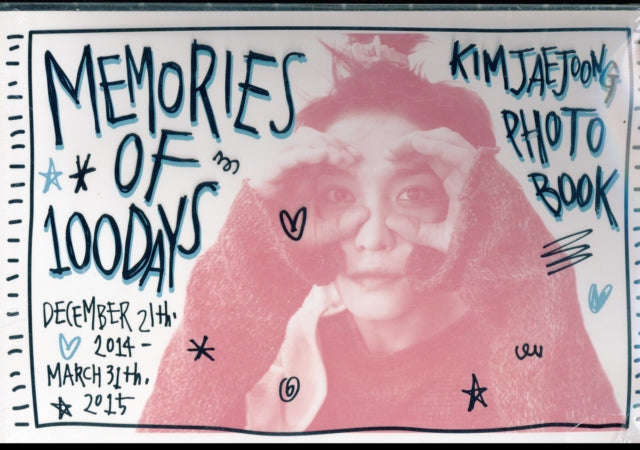 MEMORIES
OF
100DAYS
DECEMBER 21th.
2014 -
MARCH 31th.
2015
KIM JAEJOONG
PHOTO
BOOK